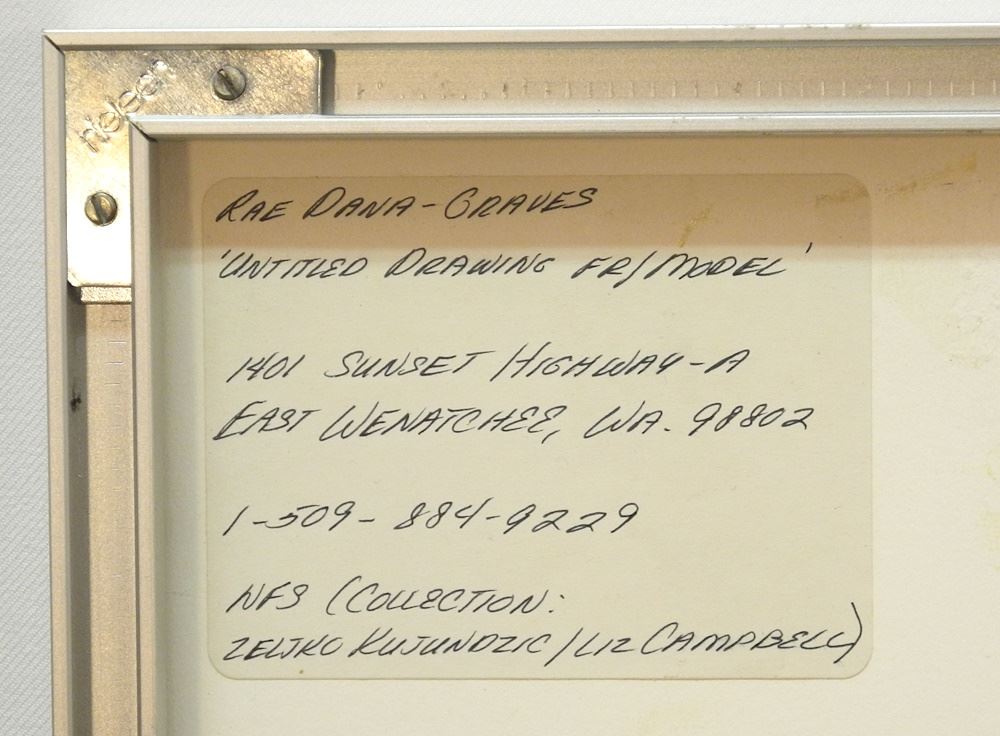 nielsen
RAE DANA-GRAVES
'UNTITLED DRAWING FR/MODEL'
1401 SUNSET HIGHWAY-A
EAST WENATCHEE, WA. 98802
1-509-884-9229
NFS (COLLECTION:
ZELJKO KUJUNDZIC/LIZ CAMPBELL)